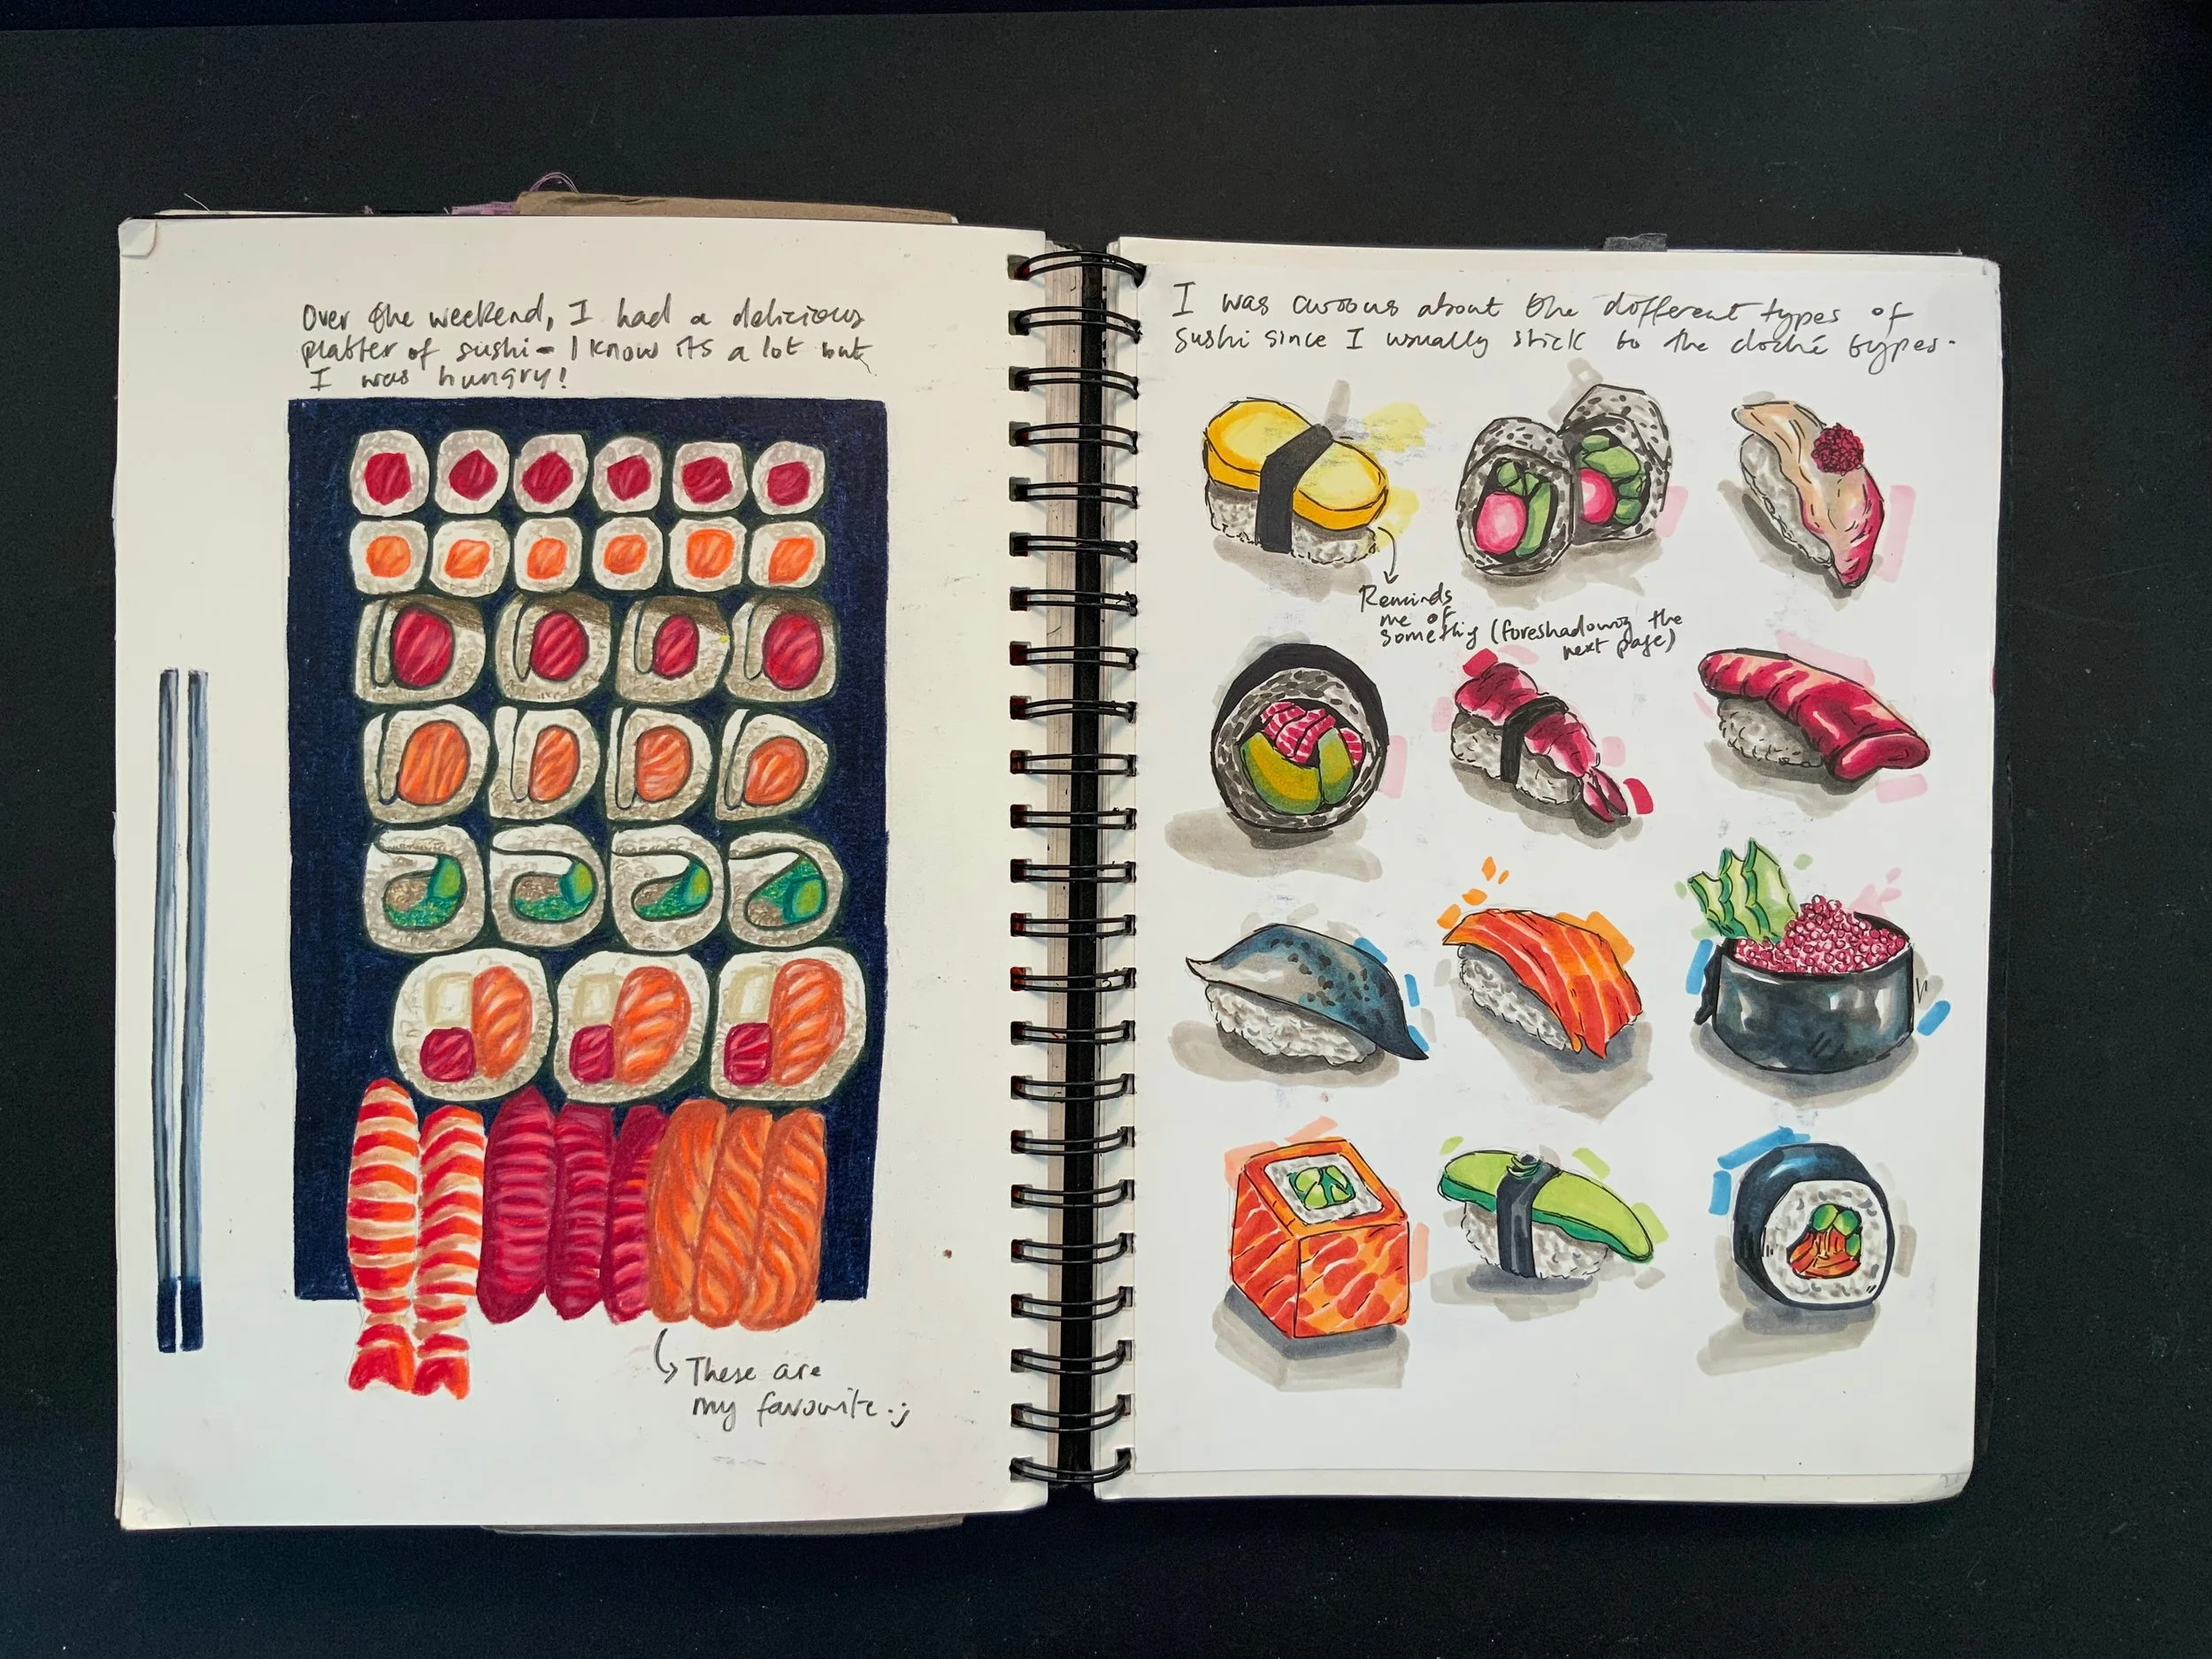 Over the weekend, I had a delicious
platter of sushi - I know its a lot but
I was hungry!
These are
my favourite :)
I was curious about the different types of
sushi since I usually stick to the cliché types.
Reminds
me of
something (foreshadowing the
next page)